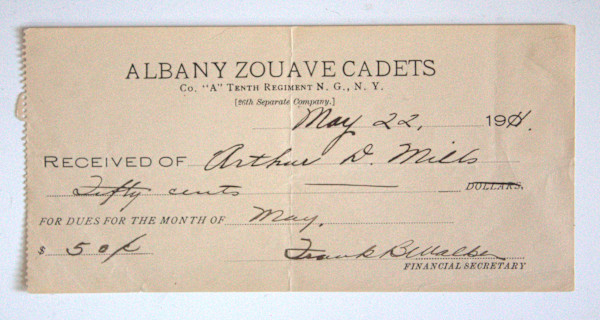 ALBANY ZOUAVE CADETS
Co. "A" Tenth Regiment N. G., N. Y.
[26th Separate Company.]
May 22, 1911.
Received of Arthur D. Mills
Fifty cents Dollars.
for dues for the month of May.
$ 50¢ Frank B Walker
FINANCIAL SECRETARY